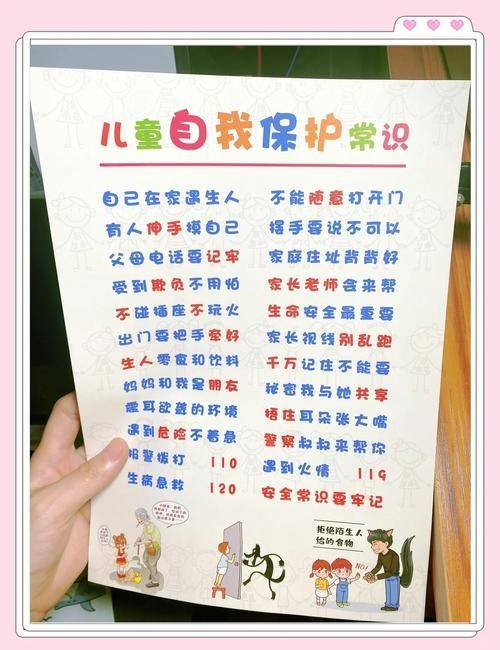 儿童自我保护常识
自己在家遇生人 不能随意打开门
有人伸手摸自己 摆手要说不可以
父母电话要记牢 家庭住址背背好
受到欺负不用怕 家长老师会来帮
不碰插座不玩火 生命安全最重要
出门要把手牵好 家长视线别乱跑
生人零食和饮料 千万记住不能要
妈妈和我是朋友 秘密我与她共享
震耳欲聋的环境 捂住耳朵张大嘴
遇到危险不着急 警察叔叔来帮你
报警拨打 110 遇到火情 119
生病急救 120 安全常识要牢记
拒绝陌生人
给的食物
NO!